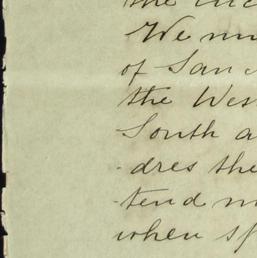 the
We
of San
the Wes
South a
-dres the
-tend m
when sp